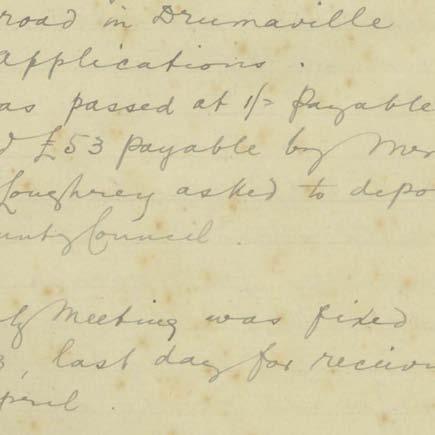 road in Drumaville
Applications.
as passed at 1/= payable
d £53 payable by Mer
Loughrey asked to depo
unty Council.
ly Meeting was fixed
3, last day for receiv
pril.